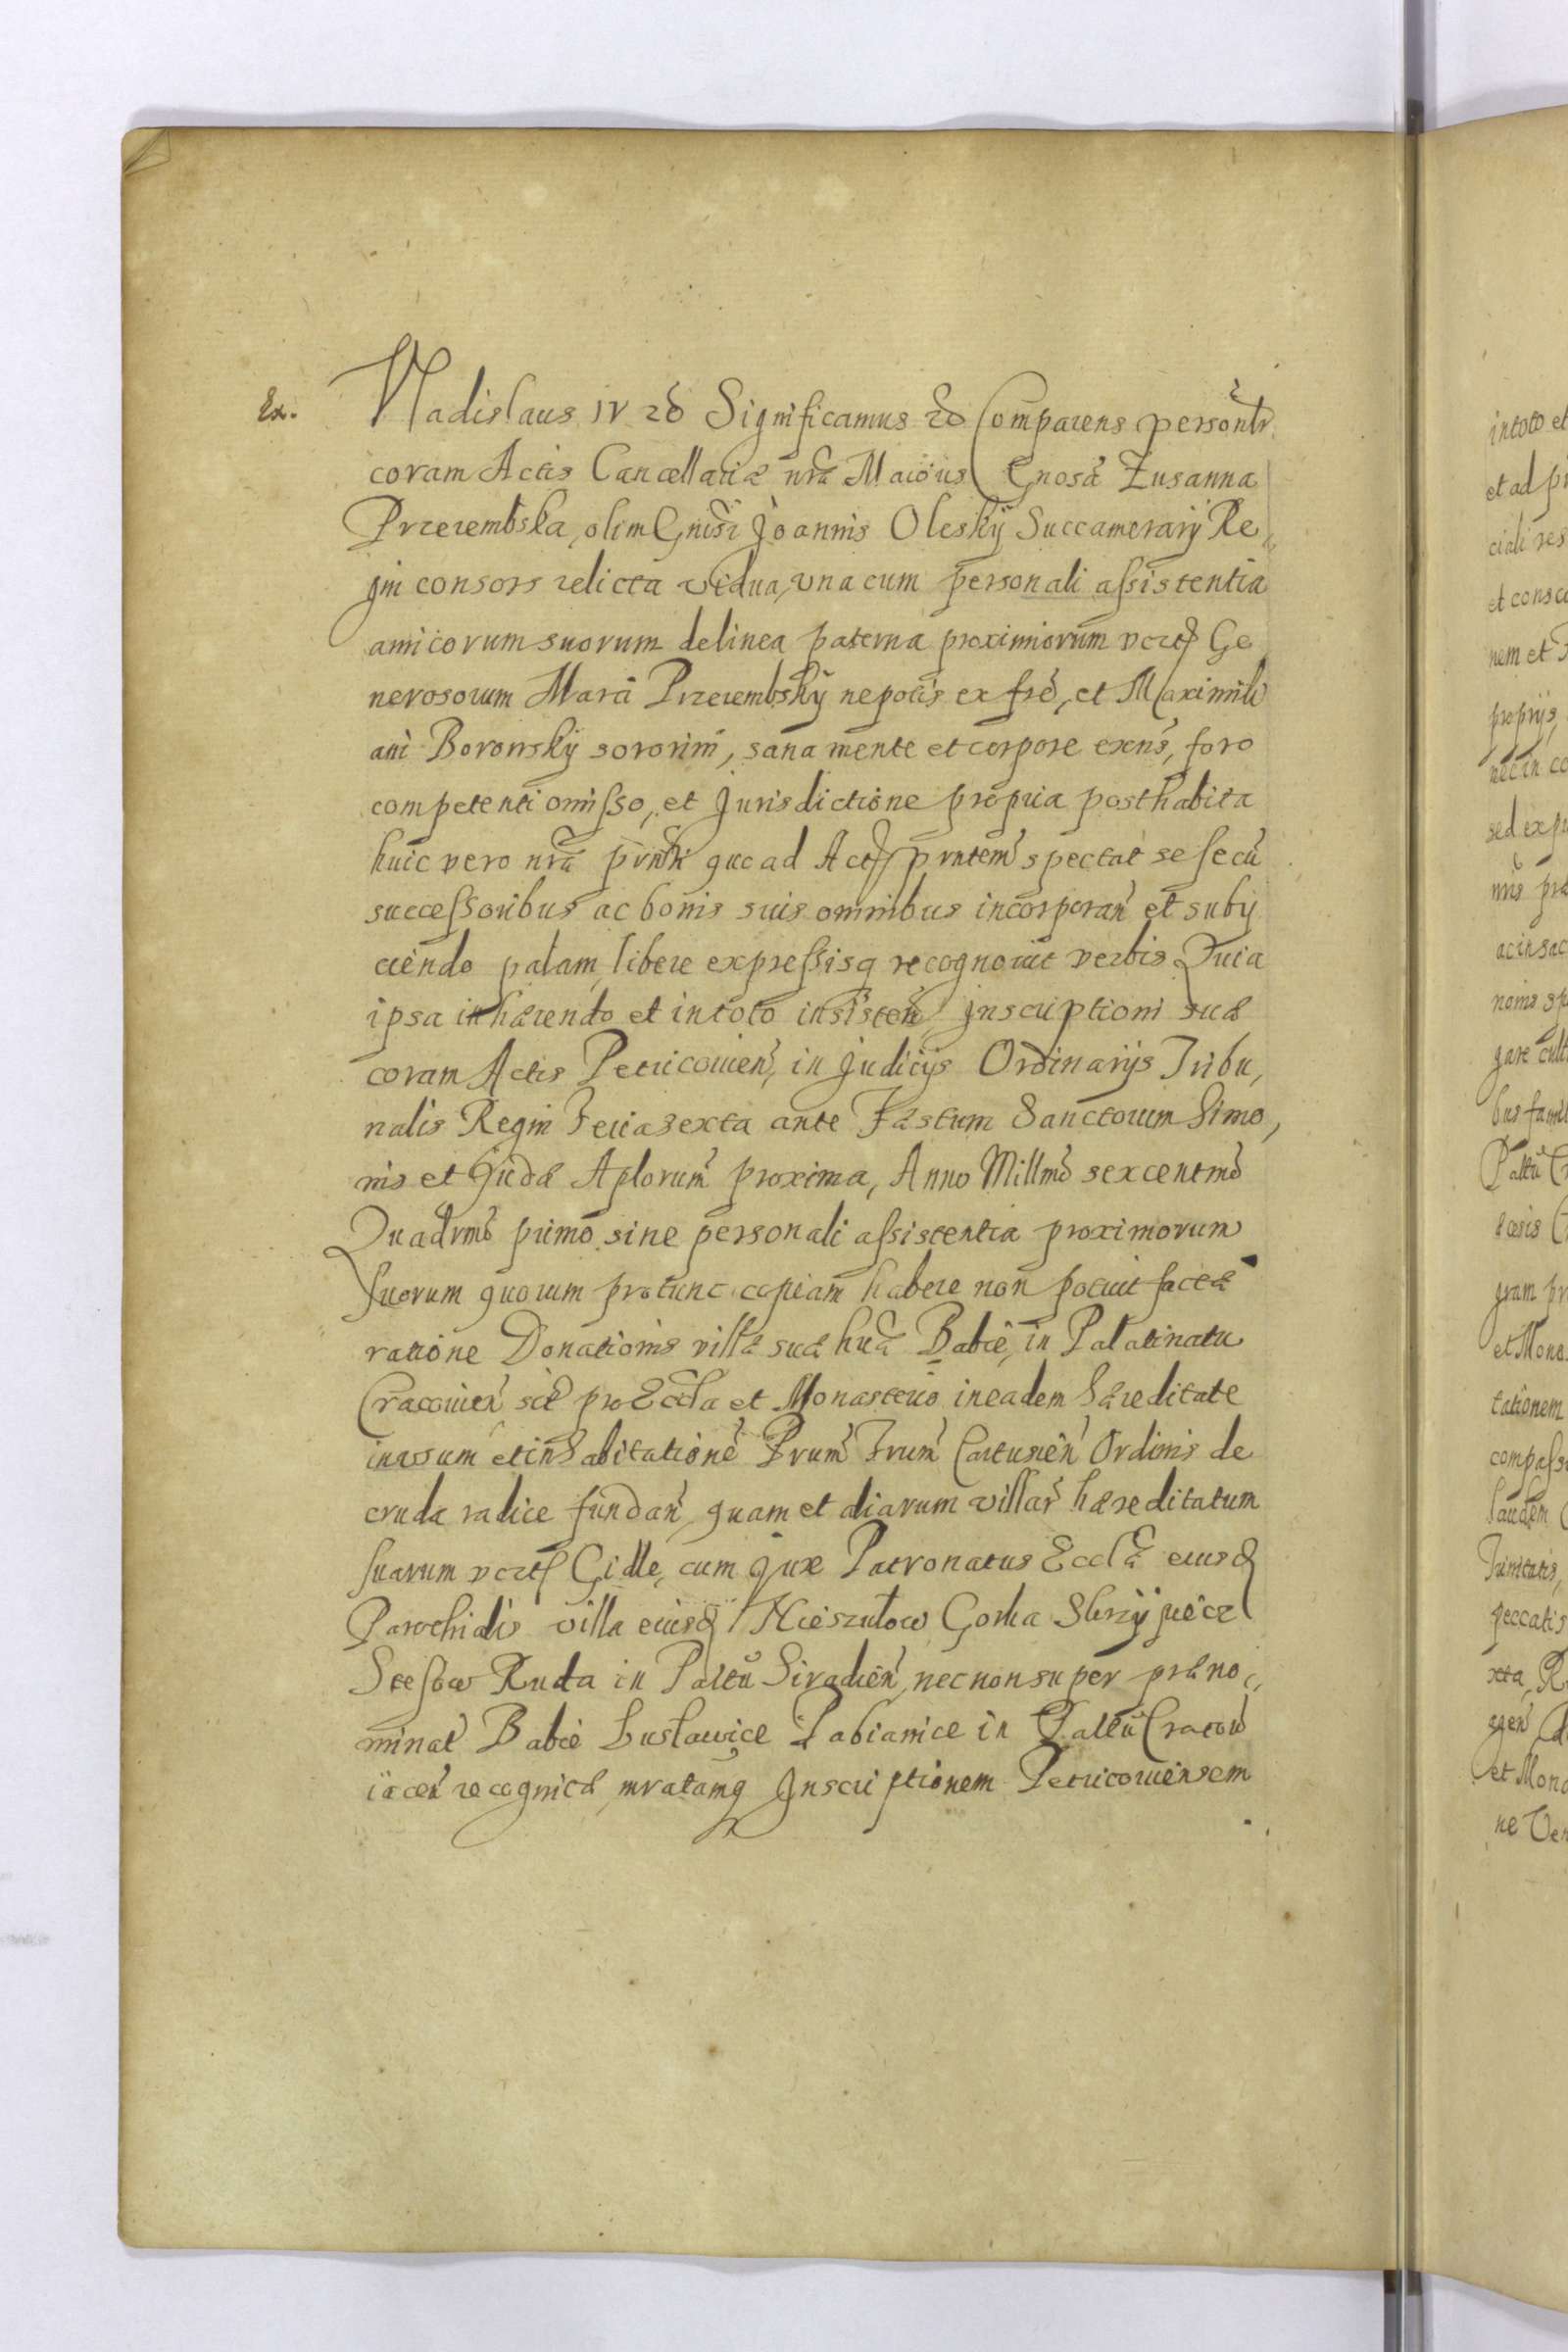 Ex. Vladislaus IV ꝛc̄ Significamus ꝛc̄ Comparens personlr̄
coram Actis Cancellariæ nr̄æ Maioris Gnosā Zusanna
Przerembska, olim Gnīsi Joannis Olesky Succamerarij Re,,
gni consors relicta vidua, una cum personali assistentia
amicorum suorum de linea paterna proximiorum vcꝫꝭ Ge
nerosorum Marci Przerembsky nepotis ex frē, et Maximili
ani Boronsky sororini, sana mente et corpore exn̄s, foro
competenti omisso, et Jurisdictione propria posthabita
huic vero nr̄æ quo ad Act prntem̄ spectat se secū
successoribus ac bonis suis omnibus incorporan̄ et subij
ciendo palam, libere expressisq recognouit verbis Quia
ipsa inhærendo et in toto insisten̄ Inscriptioni suæ
coram Actis Petricouien̄, in Judicijs Ordinarijs Tribu,
nalis Regni Feria sexta ante Fæstum Sanctorum Simo,
nis et Judæ Aplorum̄ proxima, Anno Millmō sexcentmō
Quadrmō primo sine personali assistentia proximorum
suorum quorum protunc copiam habere non potuit factæ
ratione Donationis villæ suæ hæ Babie, in Palatinatu
Cracouien̄ sitæ pro Eccla et Monasterio in eadem hæreditate
in usum et inhabitationē Prum̄ Frum̄ Cartusien̄ Ordinis de
cruda radice fundan̄, quam et aliarum villar̄ hæreditatum
suarum vcꝫꝭ Gidle, cum Jure Patronatus Ecclæ eiusd
Parochialis villa eiusd Nieszułow Gorka
Ruda in Pałtū Siradien̄, nec non super præno,,
minat Babie Lusławice Pabianice in Pałtū Cracou
iacen̄ recognitæ, mratamq Inscriptionem Petricouiensem
intoto et
et ad pr
ciali res
et consc
nem et
proprijs,
nec in co
sed ex p
nis præ
ac in sac
nonis sp
gare cult
bus famil
Pałtū
gram pr
et Mona
tationem
compass
Trinitatis,
peccatis
xta, R
et Mona
ne Ven